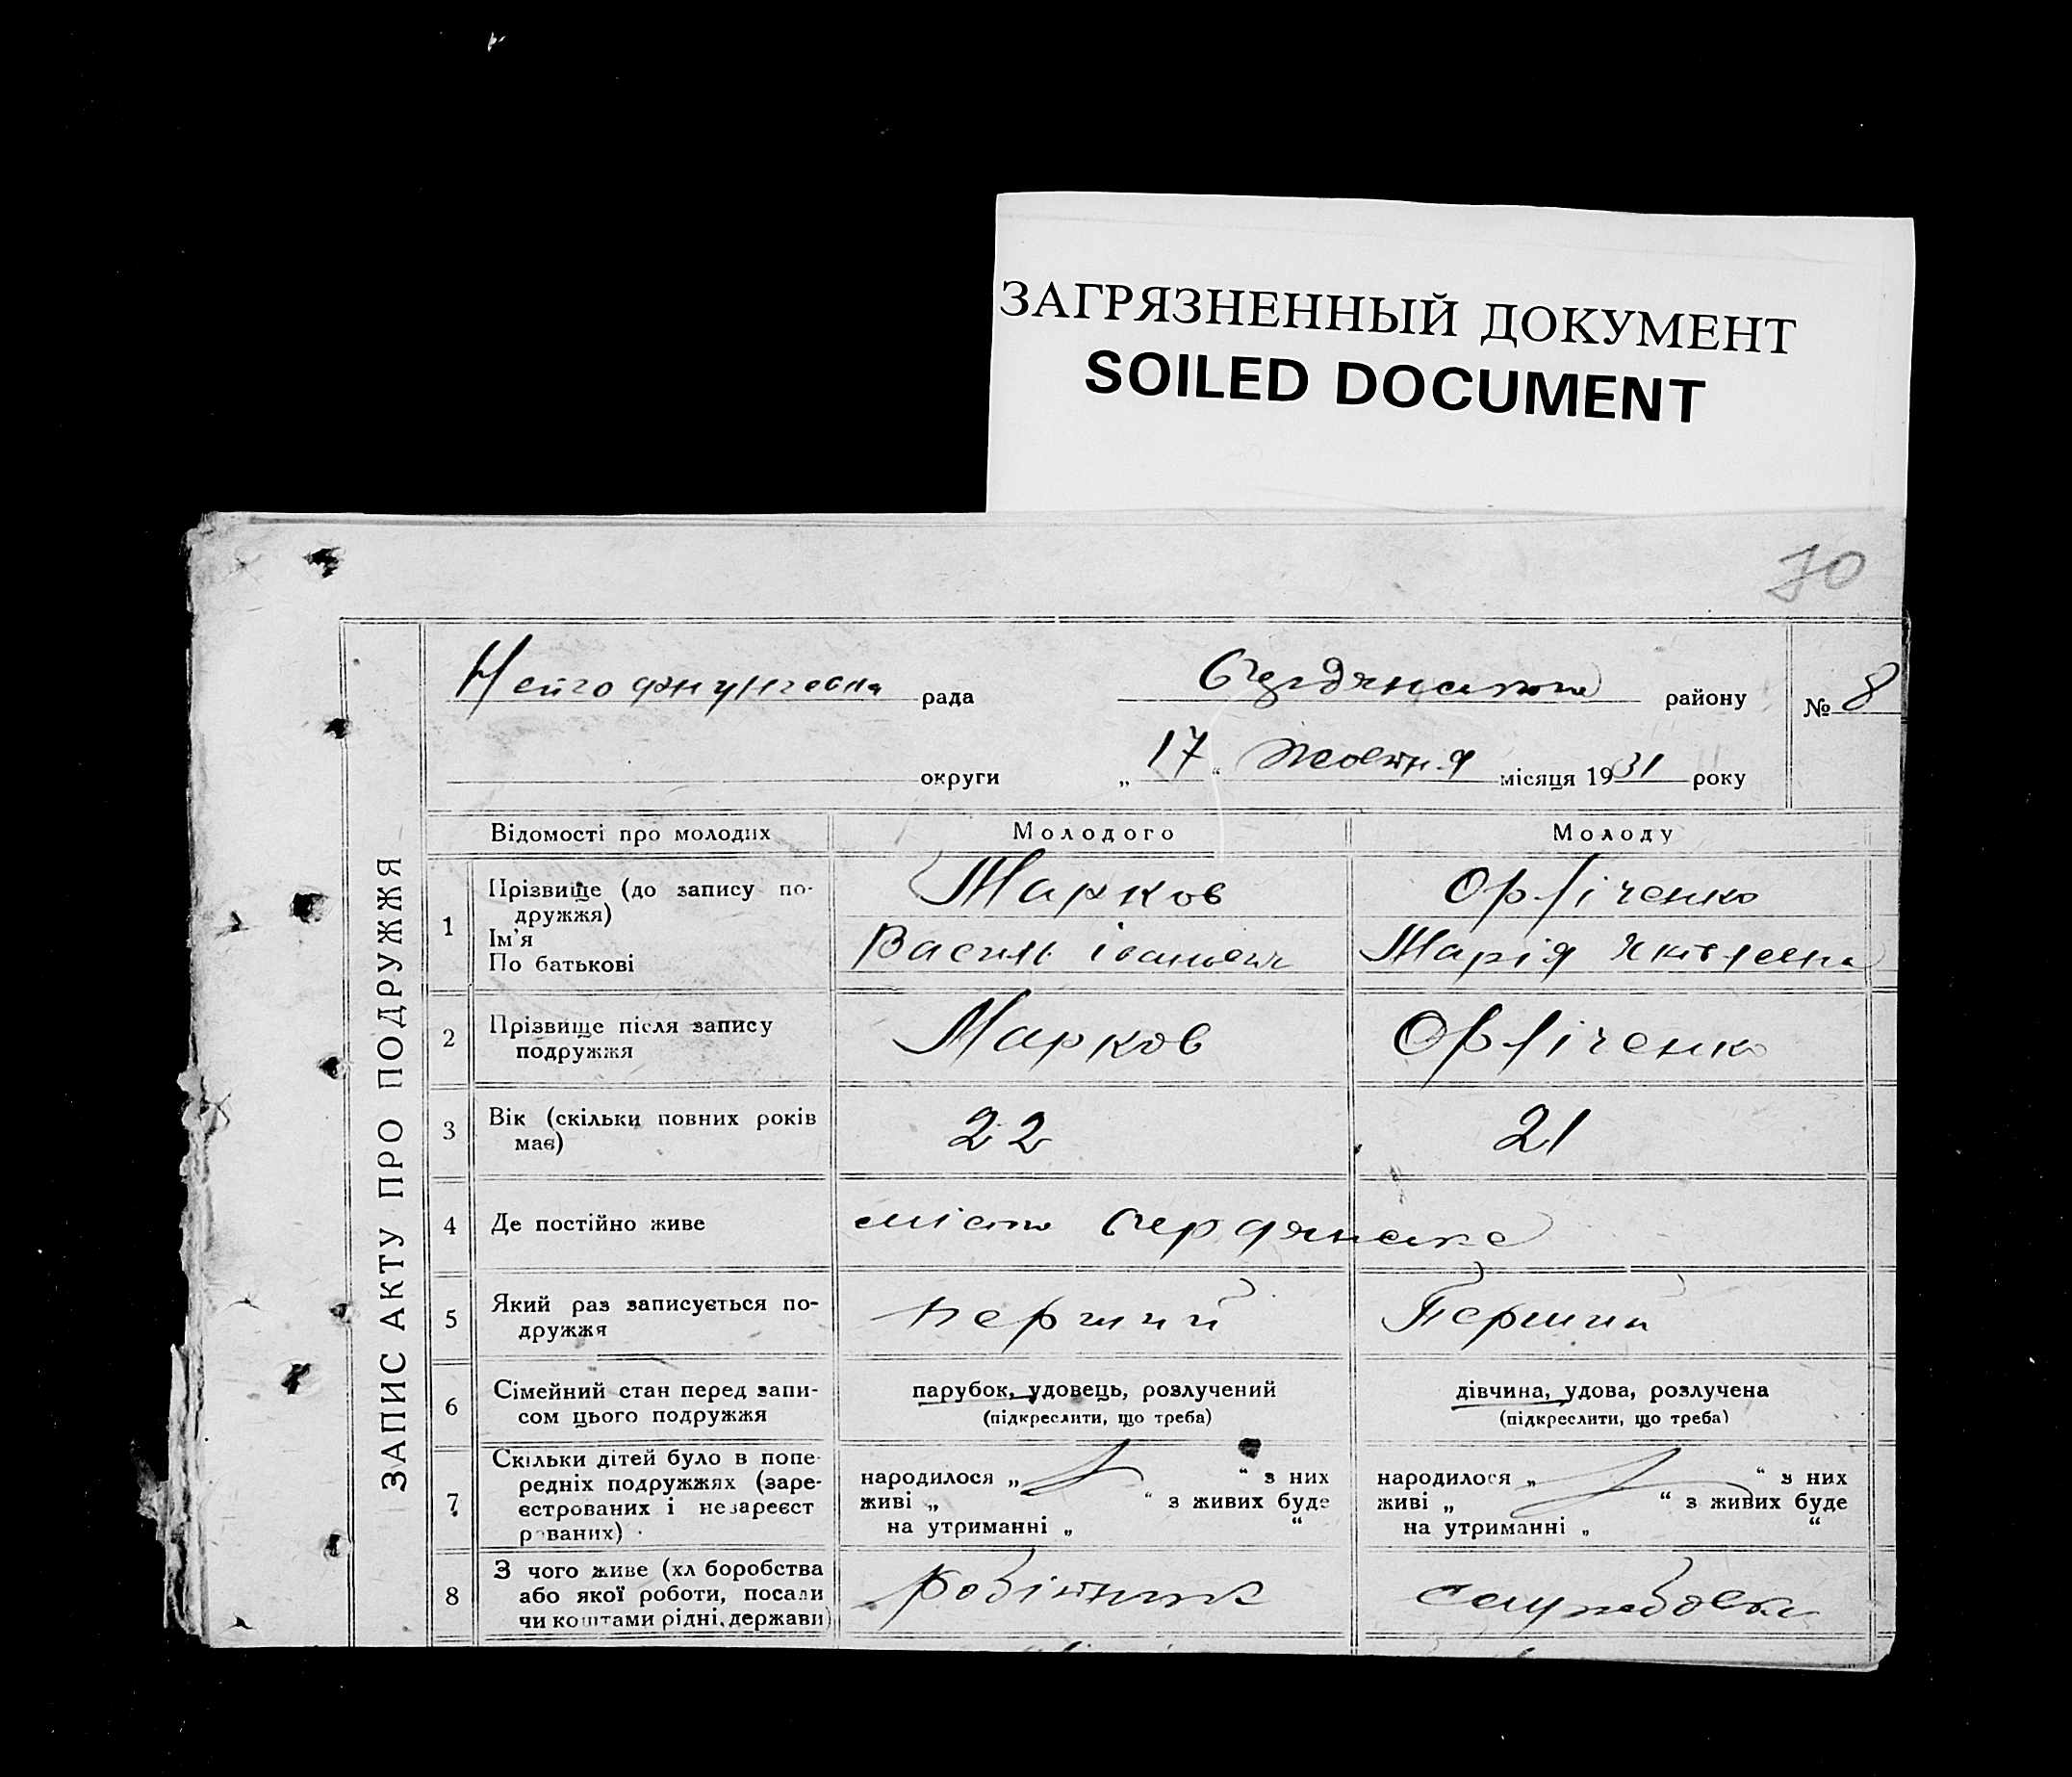 ЗАГРЯЗНЕННЫЙ ДОКУМЕНТ
SOILED DOCUMENT
70
ЗАПИС АКТУ ПРО ПОДРУЖЖЯ
рада
району
№ 8
округи
„ 17 “ Жовтня місяця 1931 року
Відомості про молодих
Молодого
Молоду
1
Прізвище (до запису по-
дружжя)
Ім'я
По батькові
Марков
Василь Іванович
Марія Яківлевна
2
Прізвище після запису
подружжя
Марков
3
Вік (скільки повних років
має)
22
21
4
Де постійно живе
місто Бердянське
5
Який раз записується по-
дружжя
перший
Перший
6
Сімейний стан перед запи-
сом цього подружжя
парубок, удовець, розлучений
(підкреслити, що треба)
дівчина, удова, розлучена
(підкреслити, що треба)
7
Скільки дітей було в попе-
редніх подружжях (заре-
єстрованих і незареєст
рованих)
народилося „ “ з них
живі „ “ з живих буде
на утриманні „ “
народилося „ “ з них
живі „ “ з живих буде
на утриманні „ “
8
З чого живе (хл боробства
або якої роботи, посади
чи коштами рідні, держави)
робітник